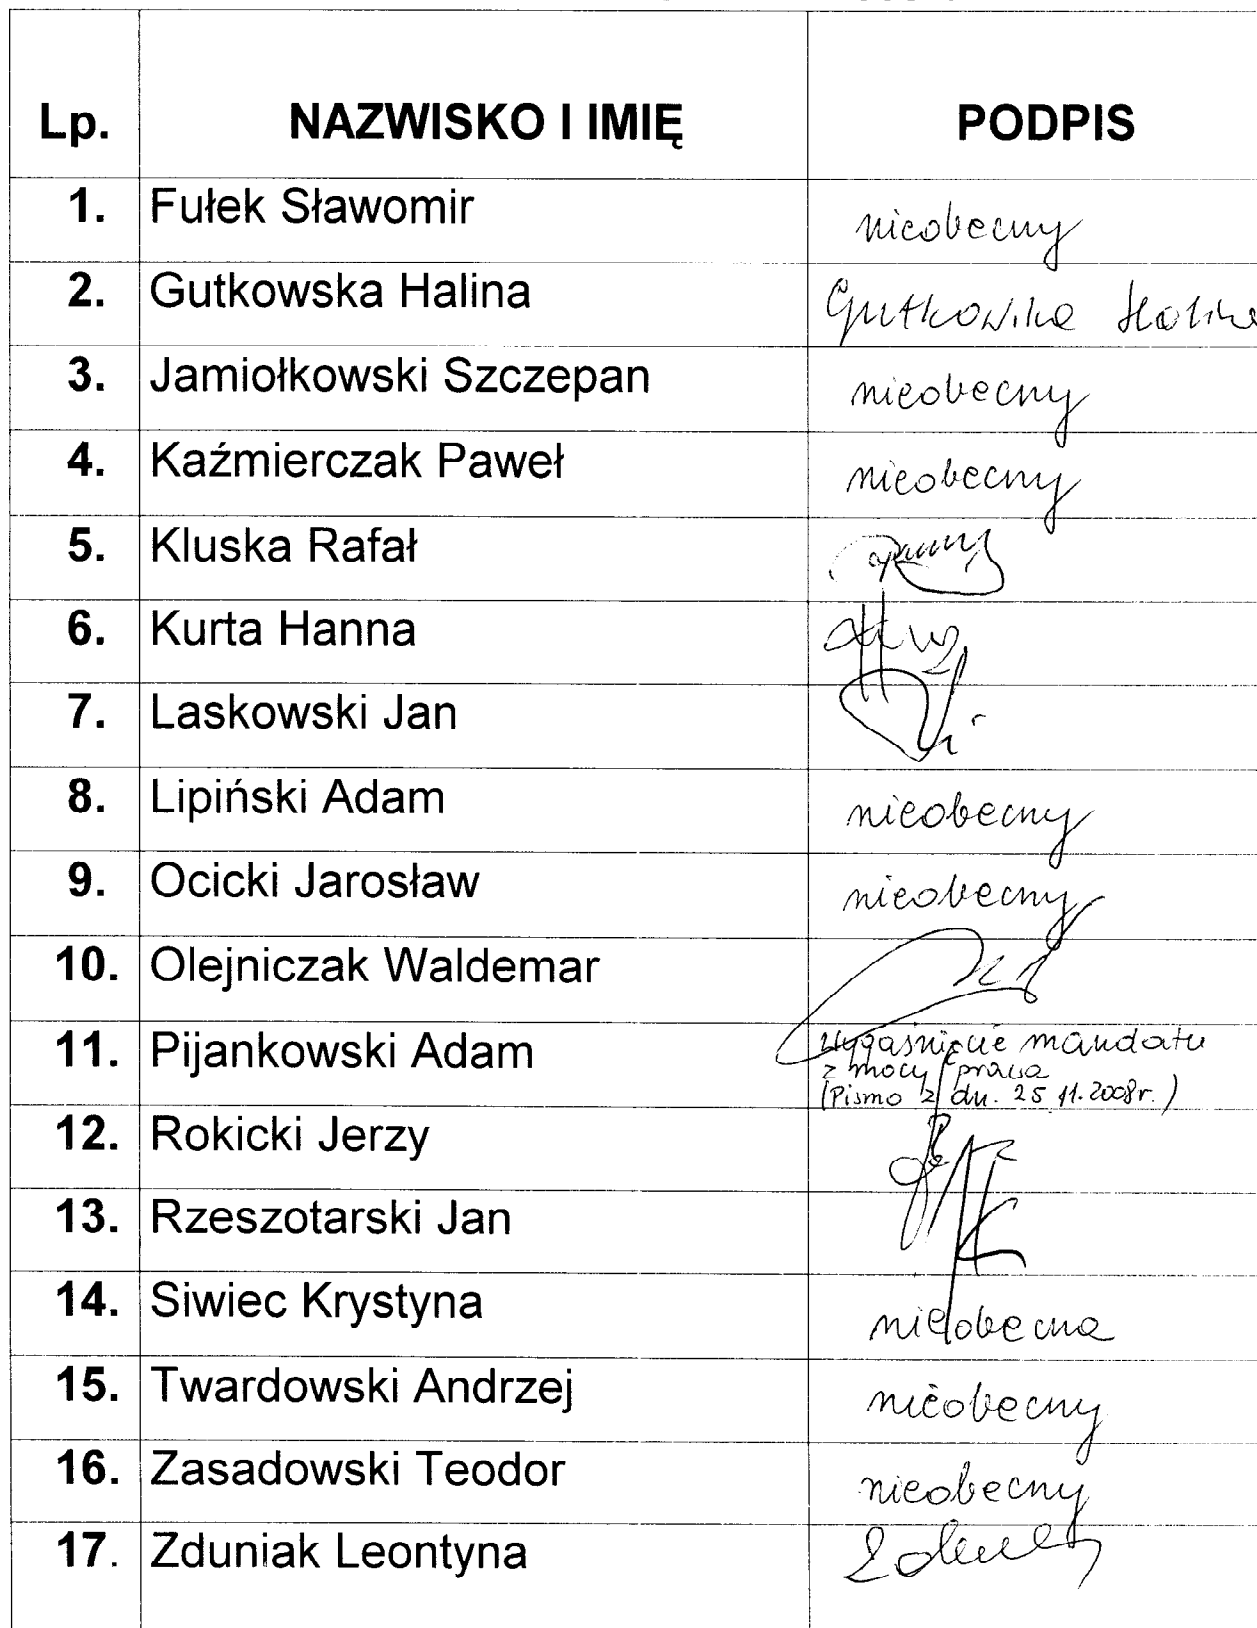 Lp. NAZWISKO I IMIĘ PODPIS
1. Fułek Sławomir nieobecny
2. Gutkowska Halina Gutkowska Halina
3. Jamiołkowski Szczepan nieobecny
4. Kaźmierczak Paweł nieobecny
5. Kluska Rafał
6. Kurta Hanna
7. Laskowski Jan
8. Lipiński Adam nieobecny
9. Ocicki Jarosław nieobecny
10. Olejniczak Waldemar
11. Pijankowski Adam wygaśnięcie mandatu
z mocy prawa
(Pismo z dn. 25 11. 2008r.)
12. Rokicki Jerzy
13. Rzeszotarski Jan
14. Siwiec Krystyna nieobecna
15. Twardowski Andrzej nieobecny
16. Zasadowski Teodor nieobecny
17. Zduniak Leontyna